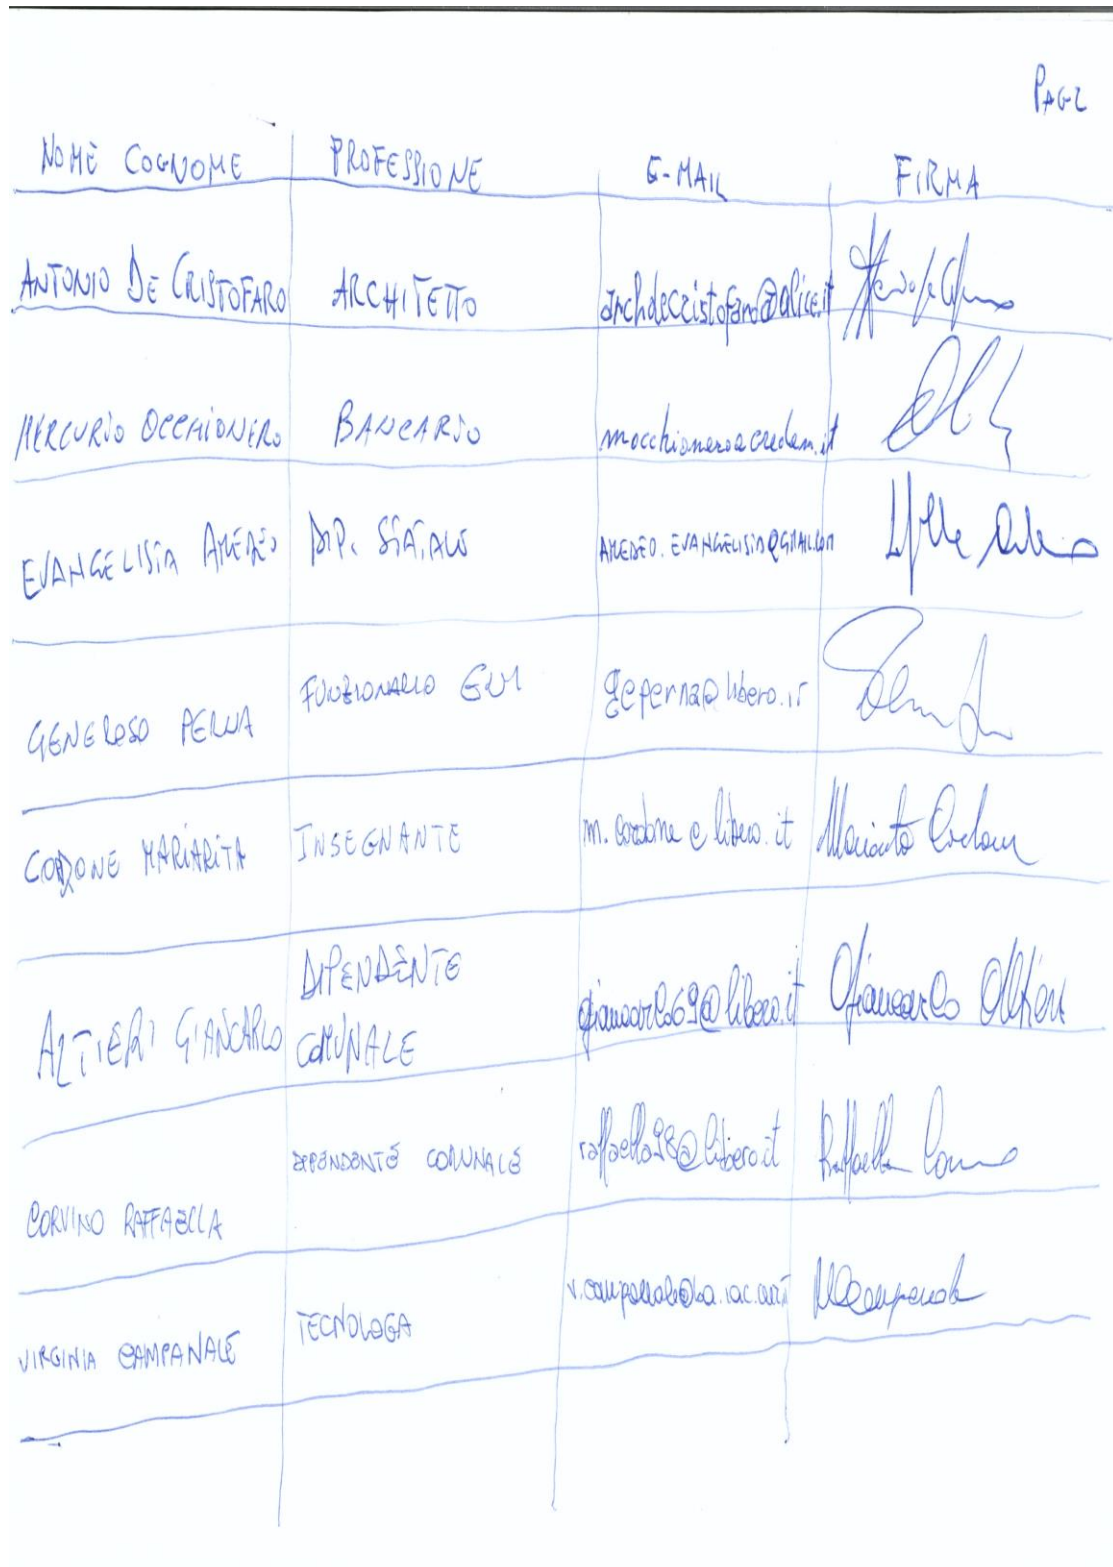 PAG 2
NOME COGNOME PROFESSIONE E-MAIL FIRMA
ANTONIO DE CRISTOFARO ARCHITETTO archdecristofaro@alice.it
MERCURIO OCCHIONERO BANCARIO mocchionero@credem.it
EVANGELISTA AMEDEO DIP. STATALE AMEDEO.EVANGELISTA@GMAIL.COM
GENEROSO PERNA FUNZIONARIO geperna@libero.it
CORDONE MARIARITA INSEGNANTE m.cordone@libero.it Mariarita Cordone
ALTIERI GIANCARLO DIPENDENTE COMUNALE giancarlo69@libero.it Giancarlo Altieri
CORVINO RAFFAELLA DIPENDENTE COMUNALE raffaella98@libero.it Raffaella Corvino
VIRGINIA CAMPANALE TECNOLOGA VCampanale